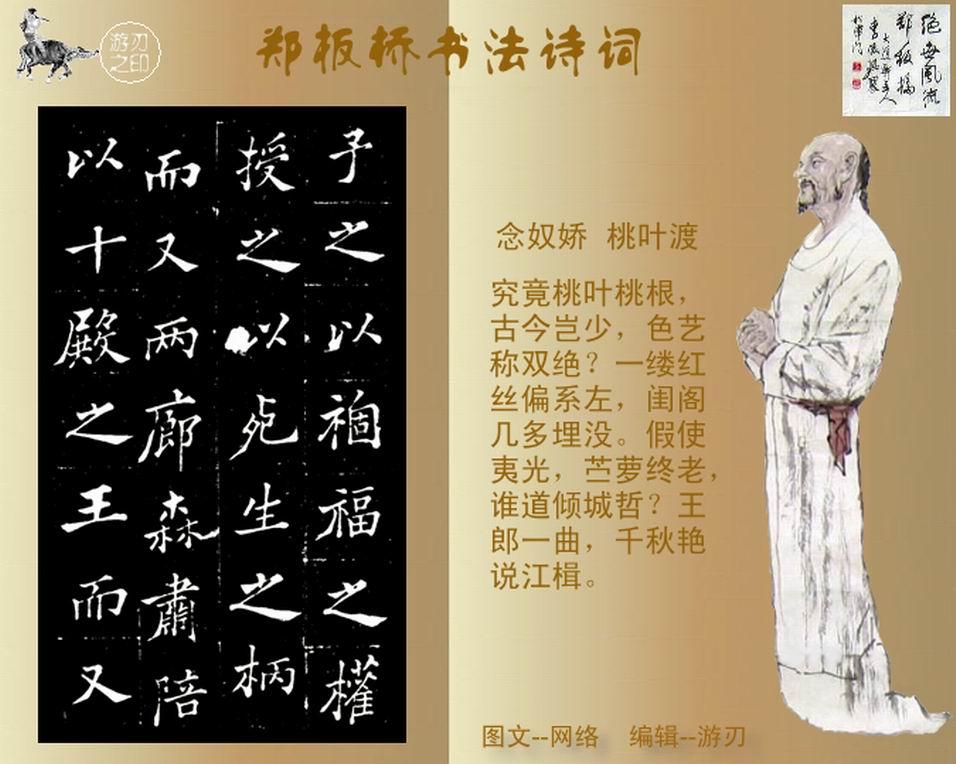 游刃
之印
郑板桥书法诗词
绝世風流
郑板橋
予之以禍福之權
授之以死生之柄
而又兩廊森肅陪
以十殿之王而又
念奴娇 桃叶渡
究竟桃叶桃根，
古今岂少，色艺
称双绝？一缕红
丝偏系左，闺阁
几多埋没。假使
夷光，苎萝终老，
谁道倾城哲？王
郎一曲，千秋艳
说江楫。
图文--网络 编辑--游刃